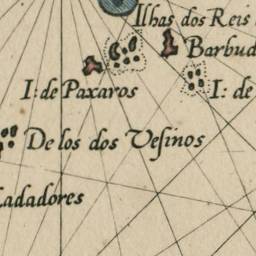 Ilhas dos Reis
Barbud
I: de Paxaros
I: de
De los dos Vesinos
Ladadores